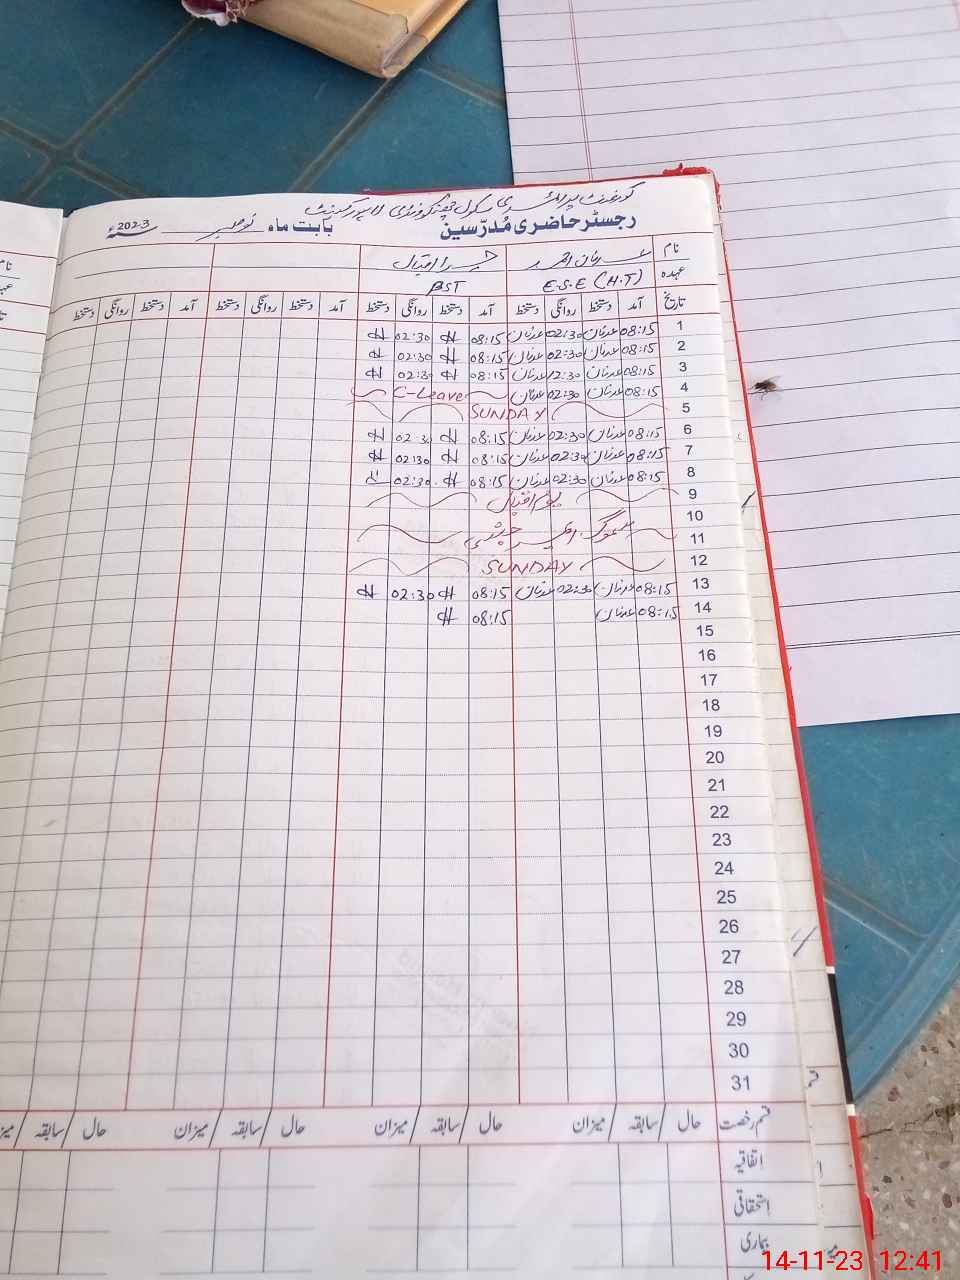 گورنمنٹ پرائمری سکول
رجسٹر حاضری مُدرّسین بابت ماہ نومبر 2023ء
نام
عہدہ E.S.E (H.T) PST
تاریخ آمد دستخط روانگی دستخط آمد دستخط روانگی دستخط آمد دستخط روانگی دستخط آمد دستخط روانگی دستخط
1 08:15 عدنان 02:30 عدنان 08:15 02:30
2 08:15 عدنان 02:30 عدنان 08:15 02:30
3 08:15 عدنان 2:30 عدنان 08:15 02:30
4 08:15 عدنان 02:30 عدنان C-Leave
5 SUNDAY
6 08:15 عدنان 02:30 عدنان 08:15
7 08:15 عدنان 02:30 عدنان 08:15 02:30
8 08:15 عدنان 02:30 عدنان 08:15 02:30
9 یوم اقبال
10
11
12 SUNDAY
13 08:15 عدنان 02:30 عدنان 08:15 02:30
14 08:15 عدنان 08:15
15
16
17
18
19
20
21
22
23
24
25
26
27
28
29
30
31
قسم رخصت حال سابقہ میزان حال سابقہ میزان حال سابقہ میزان حال سابقہ
اتفاقیہ
استحقاقی
بیماری
14-11-23 12:41